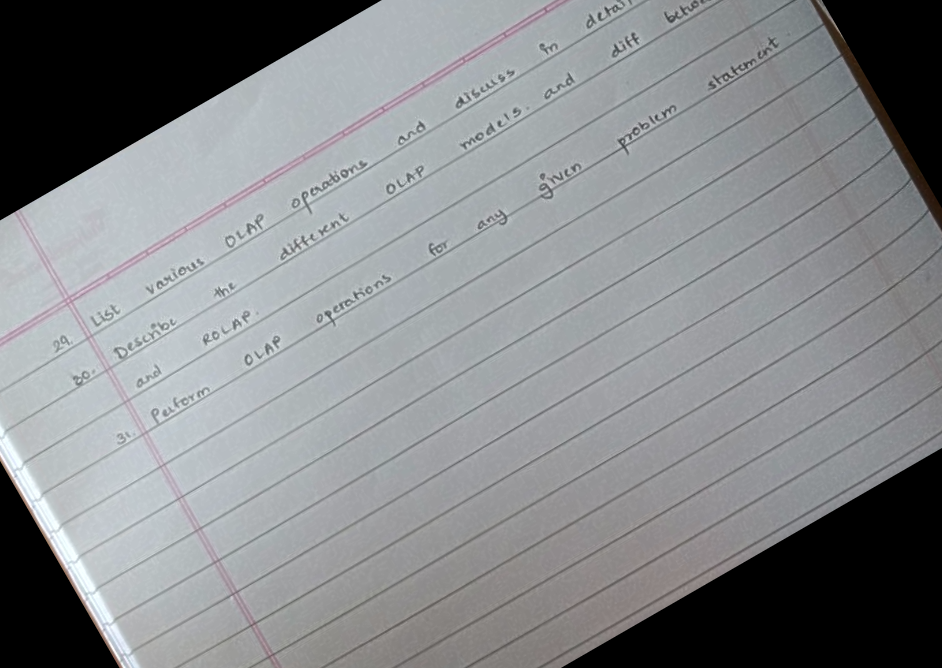 29. List various OLAP operations and discuss in detail
30. Describe the different OLAP models. and diff
and ROLAP.
31. Perform OLAP operations for any given problem statement.